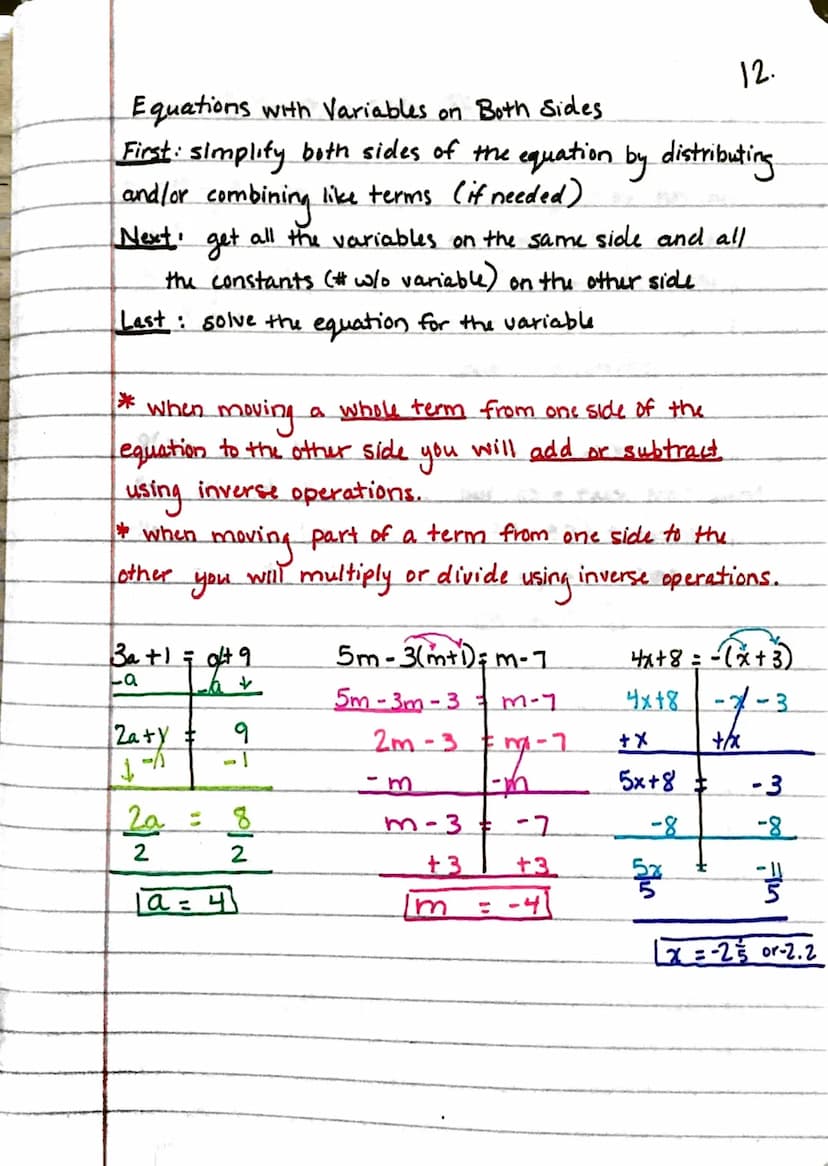 12.
Equations with Variables on Both Sides
First: simplify both sides of the equation by distributing
and/or combining like terms (if needed)
Next: get all the variables on the same side and all
the constants (# w/o variable) on the other side
Last: solve the equation for the variable
* when moving a whole term from one side of the
equation to the other side you will add or subtract
using inverse operations.
* when moving part of a term from one side to the
other you will multiply or divide using inverse operations.
3a + 1 = a + 9
-a -a ↓
2a + 1 = 9
↓ -1 -1
2a = 8
2 2
a = 4
5m - 3(m+1) = m - 7
5m - 3m - 3 = m - 7
2m - 3 = m - 7
-m -m
m - 3 = -7
+3 +3
m = -4
4x + 8 = -(x + 3)
4x + 8 -x - 3
+x +x
5x + 8 = -3
-8 -8
5x = -11
5 5
x = -2 1/5 or -2.2